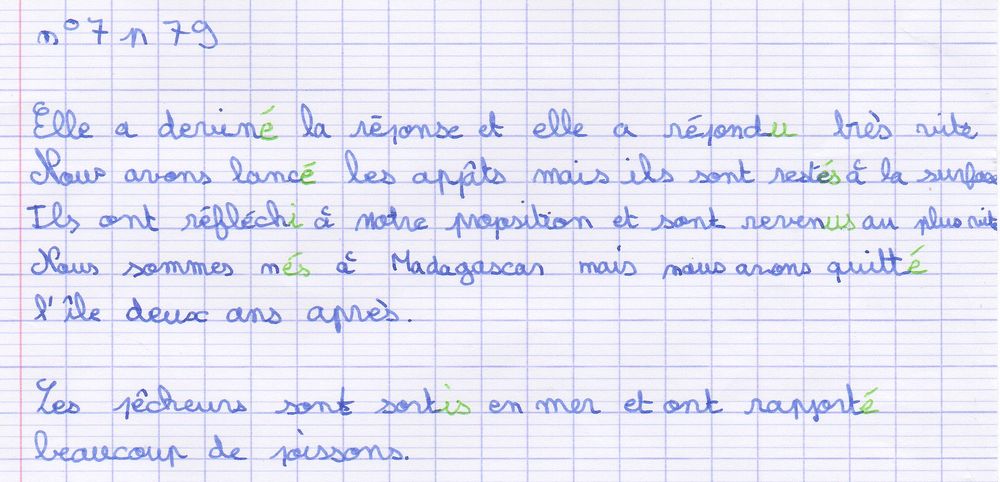 n° 7 p 79
Elle a deviné la réponse et elle a répondu très vite
Nous avons lancé les appâts mais ils sont restés à la surface
Ils ont réfléchi à notre proposition et sont revenus au plus vite
Nous sommes nés à Madagascar mais nous avons quitté
l'île deux ans après.
Les pêcheurs sont sortis en mer et ont rapporté
beaucoup de poissons.